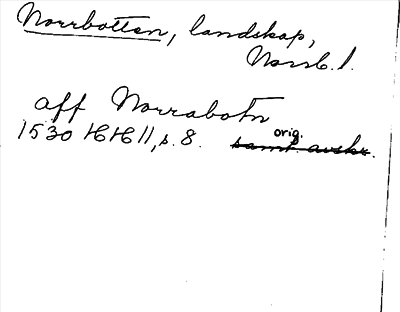 Norrbotten, landskap,
Norrb. l.
aff Norrabotn
1530 HH 11, s. 8. orig. samt. avskr.